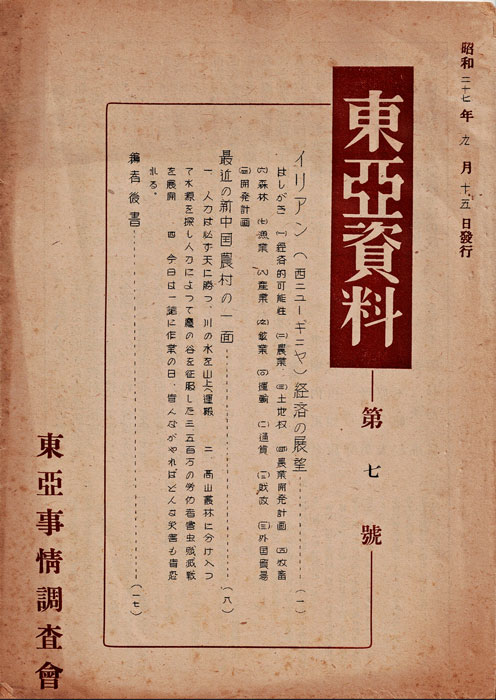 昭和二十七年九月十五日發行
東亞資料
第七號
イリアン(西ニューギニヤ)経済の展望………(一)
はしがき (一)経済的可能性 (二)農業 (三)土地权 (四)農業開発計画 (五)牧畜
(六)森林 (七)漁業 (八)産業 (九)鉱業 (10)運輸 (二)通貨 (三)財政 (三)外国貿易
(四)開発計画
最近の新中国農村の一面………(八)
一 人力は必ず天に勝つ 川の水を山上へ運搬 三 高山叢林に分け入つ
て水源を探し人力によつて魔の谷を征服した三五百万の労仂者害虫殲滅戦
を展開 四 今日は一諸に作業の日、皆んながやればどんな災害も直
れる。
編者後書………(一七)
東亞事情調査會